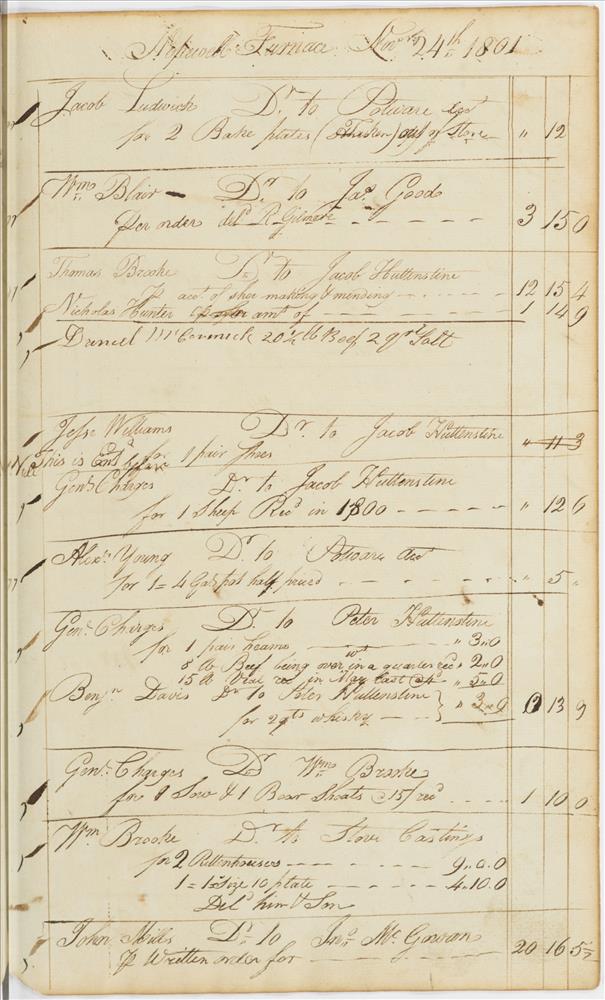 Hopewell Furnace Novr 24th 1801
Jacob Ludwick Dr to Potware acct
for 2 Bake plates (Thicken) out of Stove " 12
Wm Blair Dr to Jas Good
per order deld R. Gilmore 3 15 0
Thomas Brooke Dr to Jacob Huttenstine
acct of shoe making & mending 12 15 4
Nicholas Hunter amt of 1 14 9
Daniel McCormick 20½ lb Beef 2 qts Salt
Jesse Williams Dr to Jacob Huttenstine " 11 3
This is Entd before for 1 pair Shoes
Genl Charges Dr to Jacob Huttenstine
for 1 Sheep Recd in 1800 " 12 6
Alexr Young Dr to Potware Acct
for 1 = 4 Gal pot half priced " 5 "
Genl Charges Dr to Peter Huttenstine
for 1 pair heams " 3 " 0
8 lb Beef being over wt in a quarter recd 2 " 0
15 lb Veal recd in May last @4d " 5 " 0
Benjn Davis Dr to Peter Huttenstine " 3 " 9 0 13 9
for 2 qts whisky
Genl Charges Dr Wm Brooke
for 1 Sow & 1 Boar Shoats @15/ recd 1 10 0
Wm Brooke Dr to Stove Castings
for 2 Rittenhouses 9 " 0 " 0
1 = 1st size 10 plate 4 " 10 " 0
Deld him & Son
John Mills Dr to Jno McGowan
Written order for 20 16 5